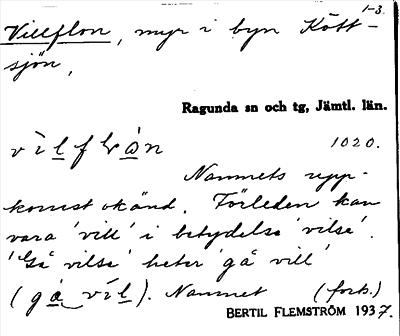 1-3.
Villflon, myr i byn Kött-
sjön,
Ragunda sn och tg, Jämtl. län.
vìlflɷn 1020.
Namnets upp-
komst okänd. Förleden kan
vara 'vill' i betydelse 'vilse'.
'Gå vilse' heter 'gå vill'
(gå víl). Namnet (forts.)
BERTIL FLEMSTRÖM 1937.